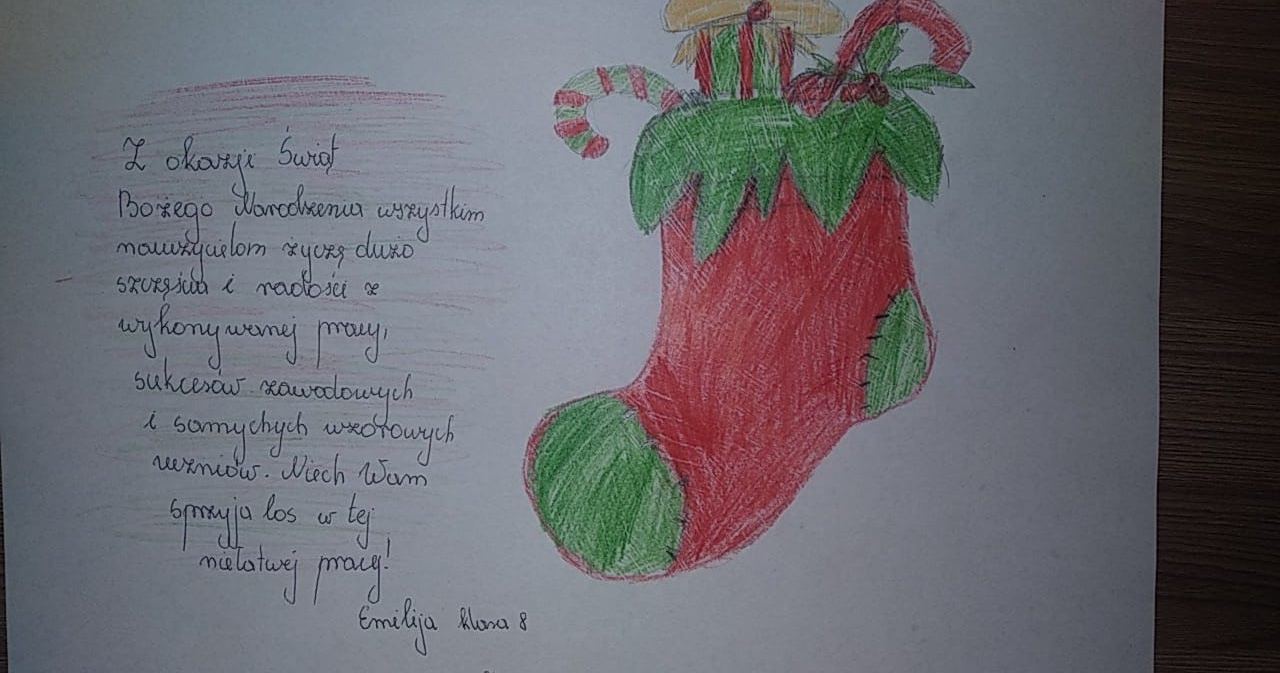 Z okazji Świąt
Bożego Narodzenia wszystkim
nauczycielom życzę dużo
szczęścia i radości z
wykonywanej pracy,
sukcesów zawodowych
i samychych wzorowych
uczniów. Niech Wam
sprzyja los w tej
niełatwej pracy!
Emilija klasa 8